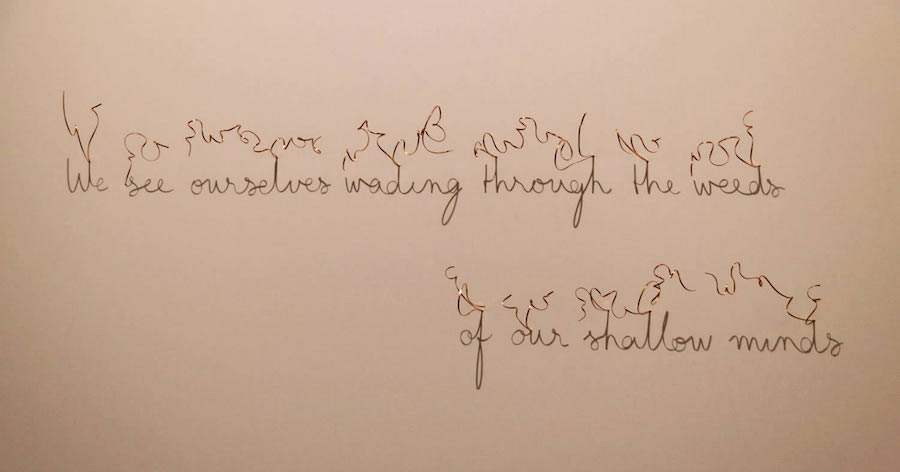 We see ourselves wading through the weeds
of our shallow minds